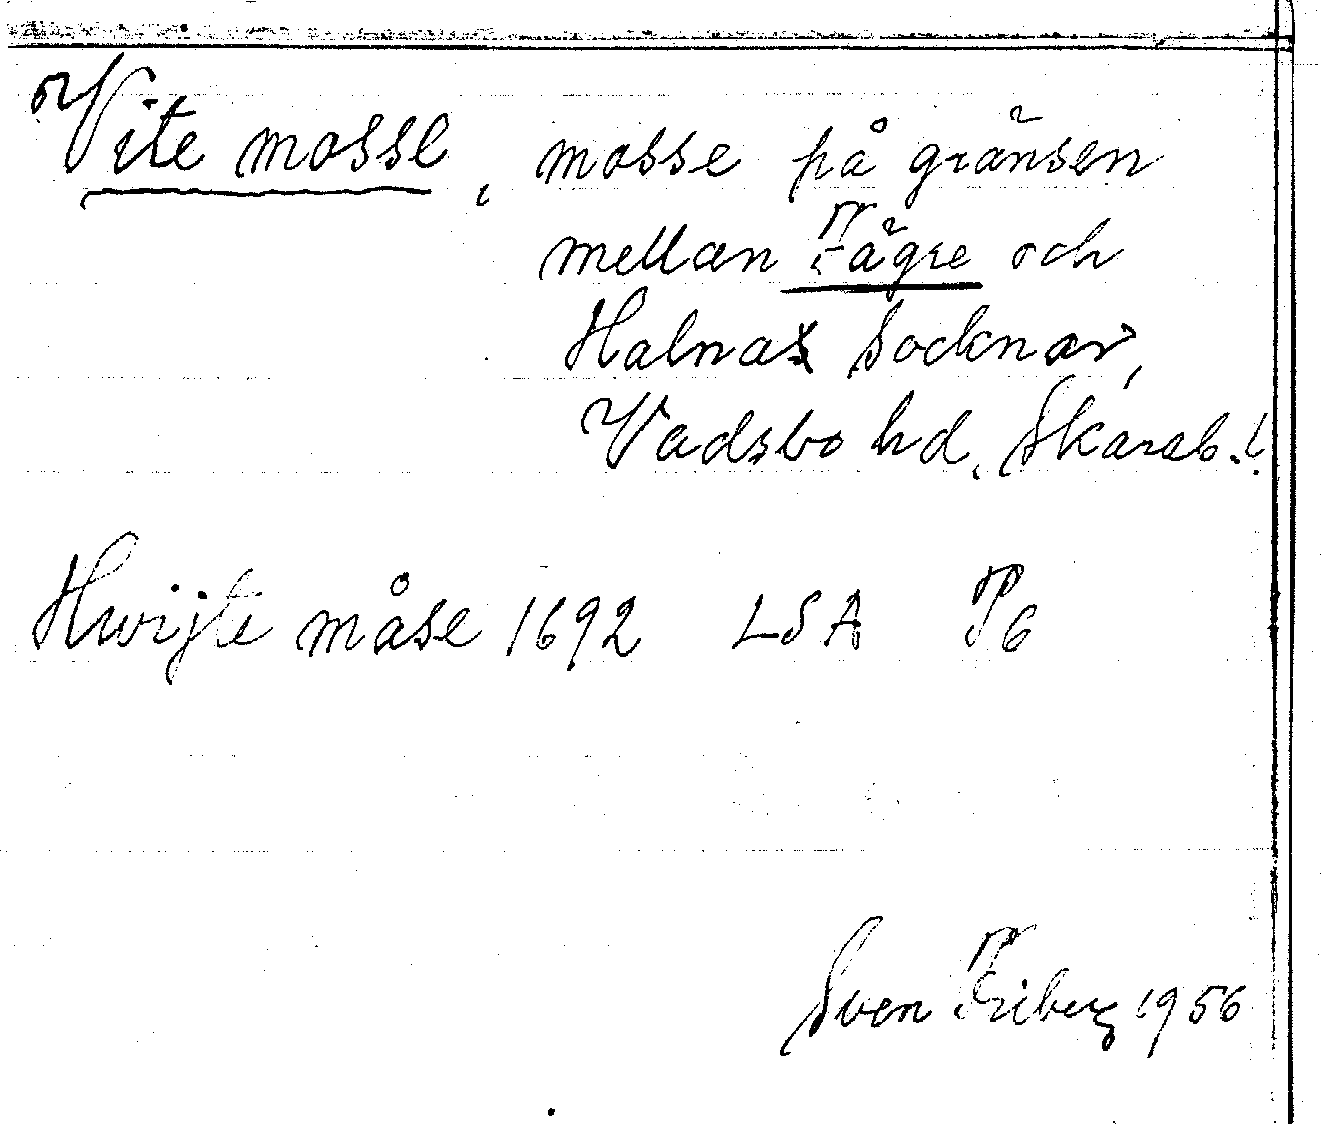 Vite mosse, mosse på gränsen
mellan Fägre och
Halnas socknar,
Vadsbo hd, Skarab. l.
Hwijte måse 1692 LSA P6
Sven Friberg 1956